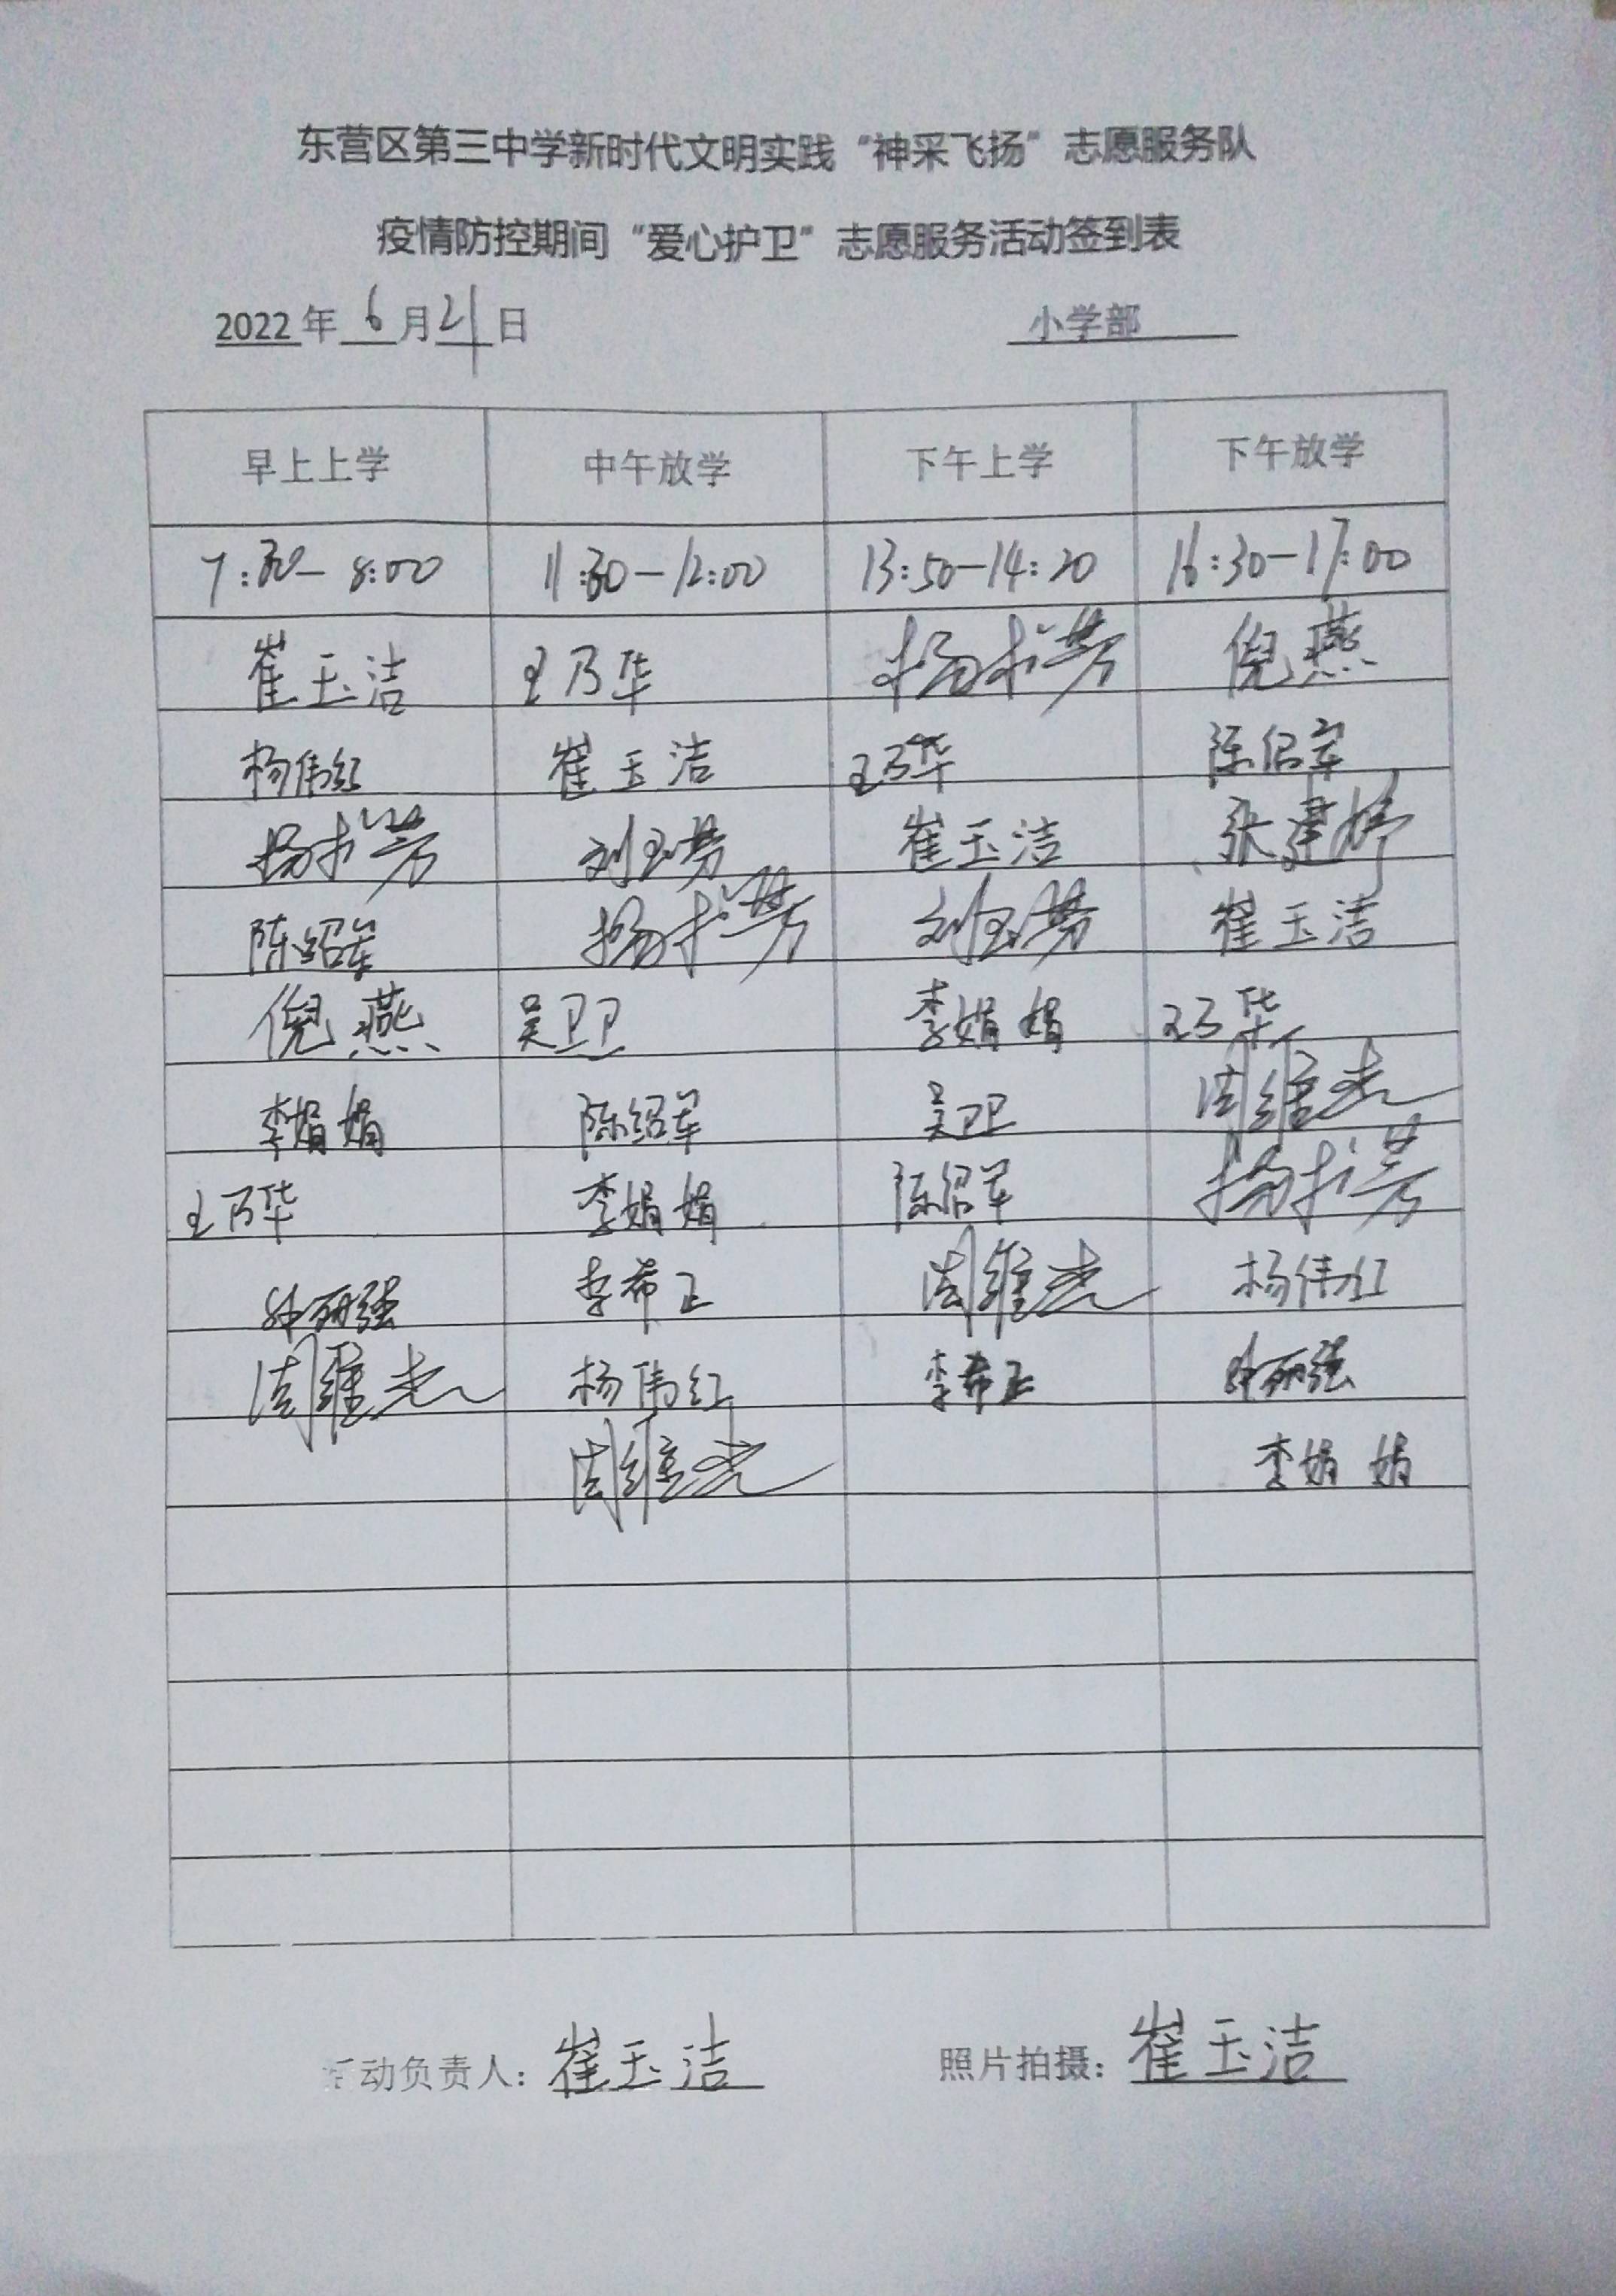 东营区第三中学新时代文明实践“神采飞扬”志愿服务队
疫情防控期间“爱心护卫”志愿服务活动签到表
2022年 6月21日 小学部
早上上学 中午放学 下午上学 下午放学
7:30-8:00 11:30-12:00 13:50-14:20 16:30-17:00
崔玉洁 王乃华 杨 芳 倪燕
杨伟红 崔玉洁 王乃华 陈绍军
杨 芳 刘玉 崔玉洁 张建婷
陈绍军 杨 芳 刘玉 崔玉洁
倪燕 吴卫卫 李娟娟 王乃华
李娟娟 陈绍军 吴卫卫 周维光
王乃华 李娟娟 陈绍军 杨 芳
丽强 李希正 周维光 杨伟红
周维光 杨伟红 李希正 丽强
周维光 李娟娟
活动负责人：崔玉洁 照片拍摄：崔玉洁